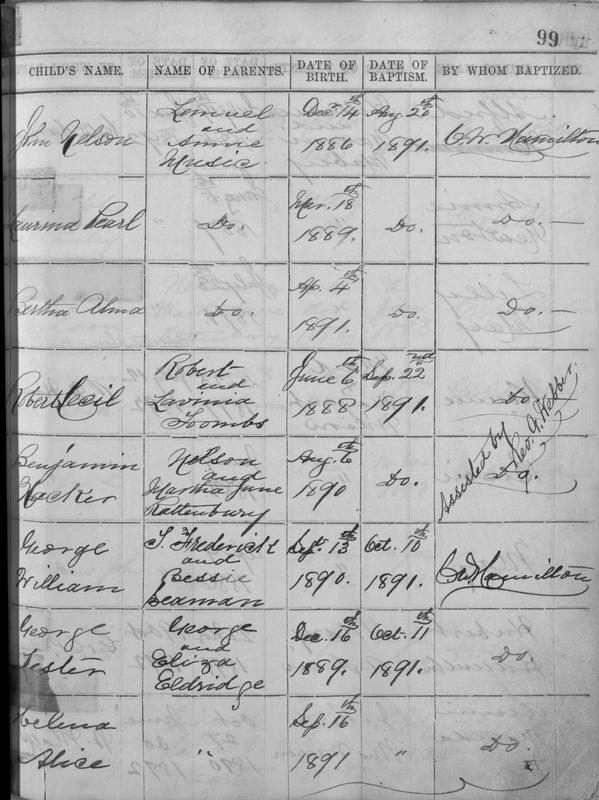 99
CHILD'S NAME. NAME OF PARENTS. DATE OF BIRTH. DATE OF BAPTISM. BY WHOM BAPTIZED.
John Nelson Lemuel and Annie Music Dec. 14th 1886 Aug. 20th 1891. C. W. Hamilton
Laurina Pearl Do. Mar. 18th 1889. Do. Do. —
Bertha Alma Do. Ap. 4th 1891. Do. Do. —
Robert Cecil Robert and Lavinia Toombs June 6th 1888 Sep. 22nd 1891. Do
Benjamin Hacker Nelson and Martha Jane Rattenbury Aug. 6th 1890 Do. Do.
Assisted by Rev. A. Hebber.
George William S. Frederick and Bessie Seaman Sept. 13th 1890. Oct. 10th 1891. C. W. Hamilton
George Lester George and Eliza Eldridge Dec. 16th 1889. Oct. 11th 1891. Do.
Helena Alice " Sep. 16th 1891 " Do.